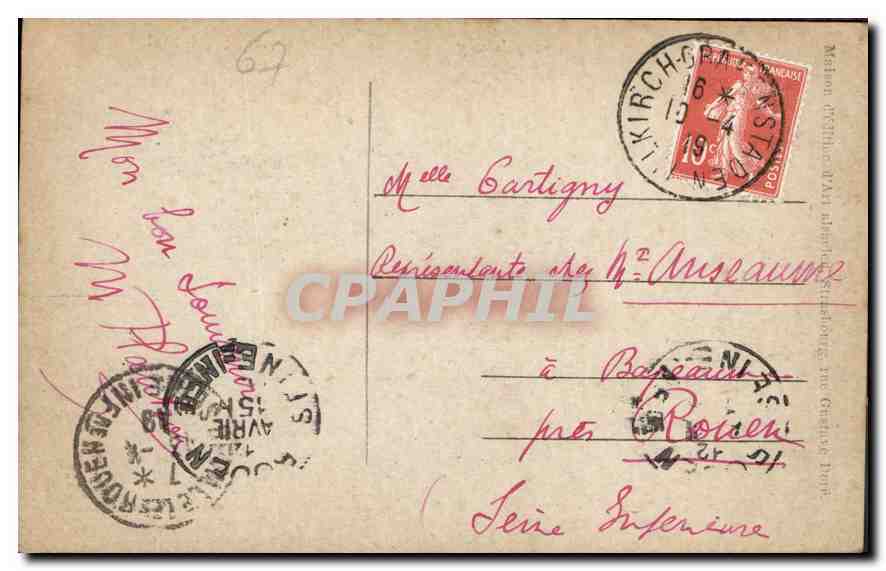 67
Mon bon Souvenir
M
Melle Cartigny
Représentante chez Mr Anseaume
à Bapeaume
près Rouen
Seine Inférieure
ILLKIRCH-GRAFENSTADEN
16 *
10 - 4
19
REPUBLIQUE FRANÇAISE
10 c
POSTES
Maison d'édition d'Art alsacien, Strasbourg, rue Gustave Doré
CPAPHIL
15 H
AVRIL
12
ROUEN